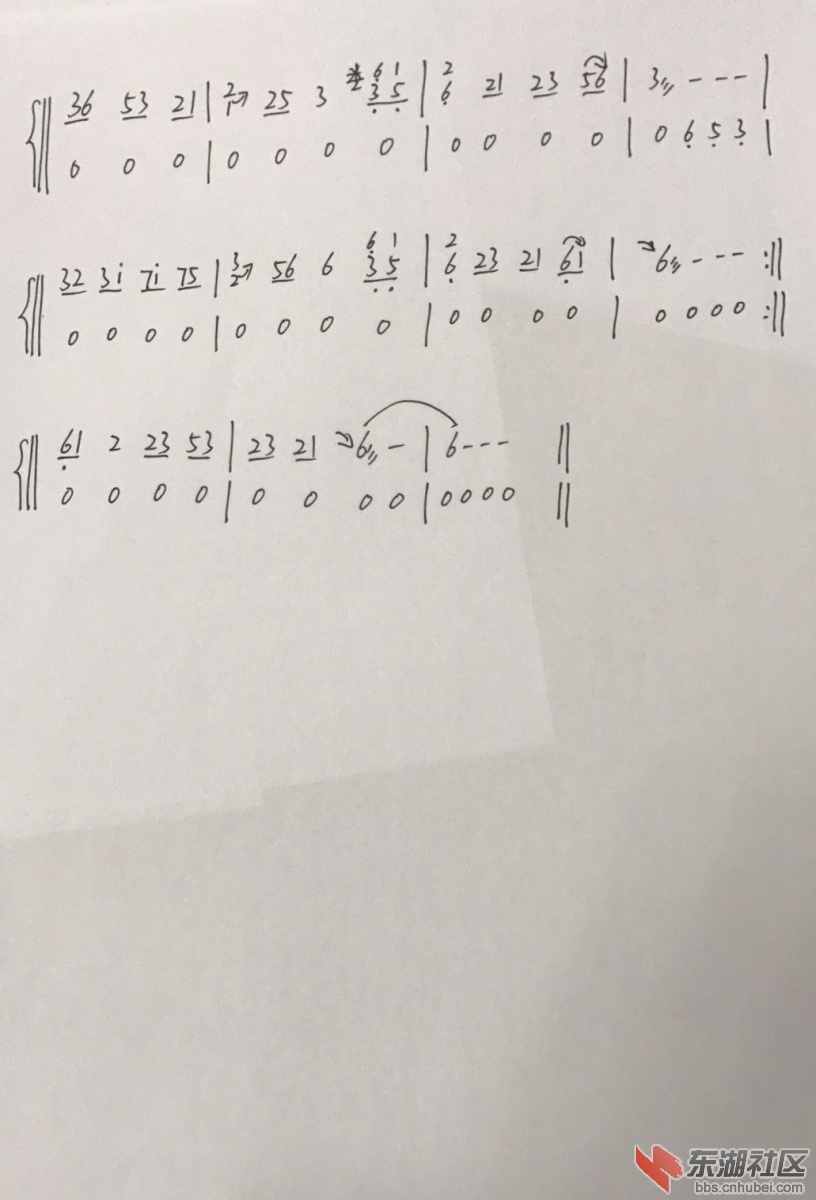 36 53 21 | 2/1 25 3 6 1 / 3 5 | 2/6 21 23 56 | 3 - - - |
0 0 0 | 0 0 0 0 | 0 0 0 0 | 0 6 5 3 |
32 3i 7i 75 | 3/2 56 6 6 1 / 3 5 | 2/6 23 21 61 | 6 - - - :||
0 0 0 0 | 0 0 0 0 | 0 0 0 0 | 0 0 0 0 :||
61 2 23 53 | 23 21 6 - | 6 - - - ||
0 0 0 0 | 0 0 0 0 | 0 0 0 0 ||
东湖社区
bbs.cnhubei.com